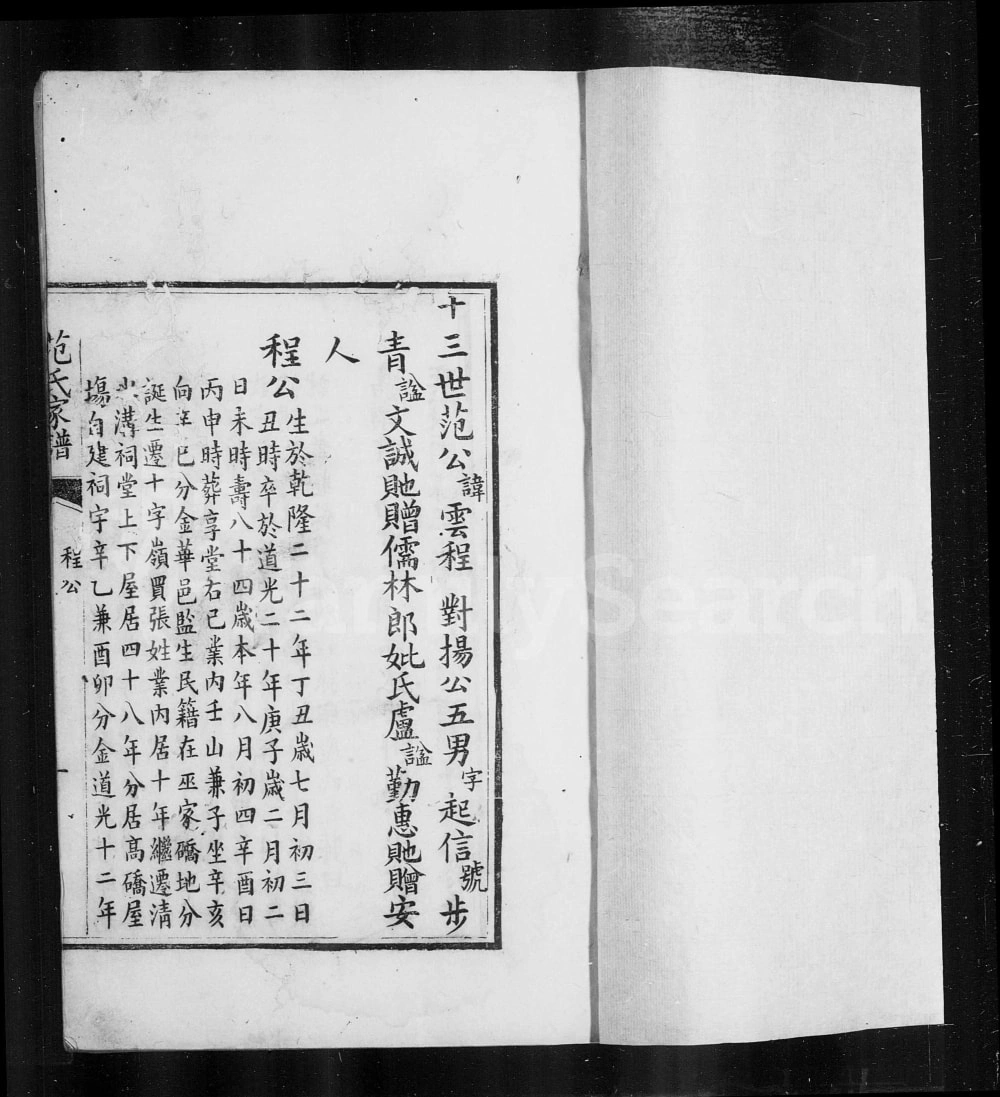 十三世范公諱雲程對揚公五男字起信號步
青諡文誠貤贈儒林郎妣氏盧諡勤惠貤贈安
人
程公生於乾隆二十二年丁丑歲七月初三日
丑時卒於道光二十年庚子歲二月初二
日未時壽八十四歲本年八月初四辛酉日
丙申時葬享堂右已業內壬山兼子坐辛亥
向辛巳分金華邑監生民籍在巫家礄地分
誕生遷十字嶺買張姓業內居十年繼遷清
水溝祠堂上下屋居四十八年分居高礄屋
塲自建祠宇辛乙兼酉卯分金道光十二年
范氏家譜
程公
一
FamilySearch